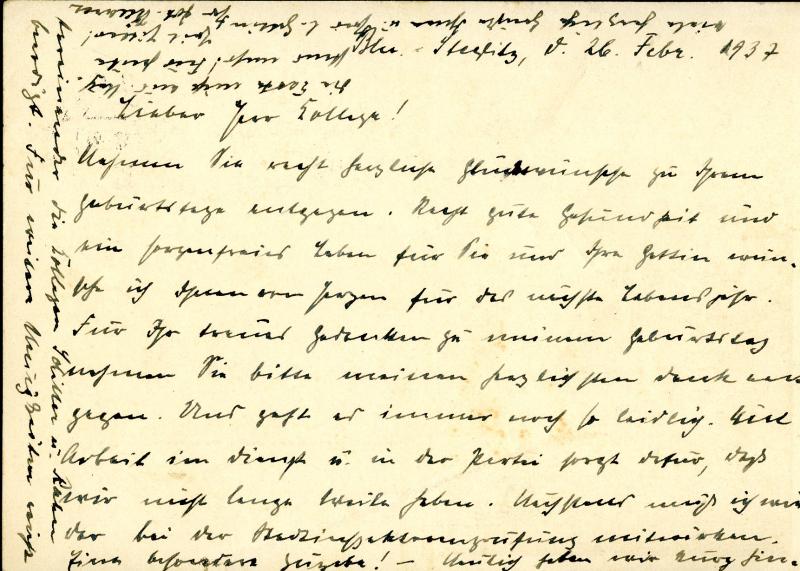 Bln.-Steglitz, d. 26. Febr. 1937
Lieber Herr Kollege!
Nehmen Sie recht herzliche Glückwünsche zu Ihrem
Geburtstage entgegen. Recht gute Gesundheit und
ein sorgenfreies Leben für Sie und Ihre Gattin wün-
sche ich Ihnen von Herzen für das nächste Lebensjahr.
Für Ihr treues Gedenken zu meinem Geburtstag
nehmen Sie bitte meinen herzlichsten Dank ent-
gegen. Uns geht es immer noch so leidlich. Viel
Arbeit im Dienst u. in der Partei sorgt dafür, daß
wir nicht lange Weile haben. Nächstens muß ich wie-
der bei der Stadtinspektorenprüfung mitwirken.
Eine besondere Zugabe! – Neulich haben wir kurz hin-
tereinander die Kollegen Schiller u. Rahn
beerdigt. Für weitere Neuigkeiten reicht
die Karte nicht aus. Mag
Ihnen
Heil Hitler!
viele herzliche Grüße Ihnen u. Ihrer l. Gattin